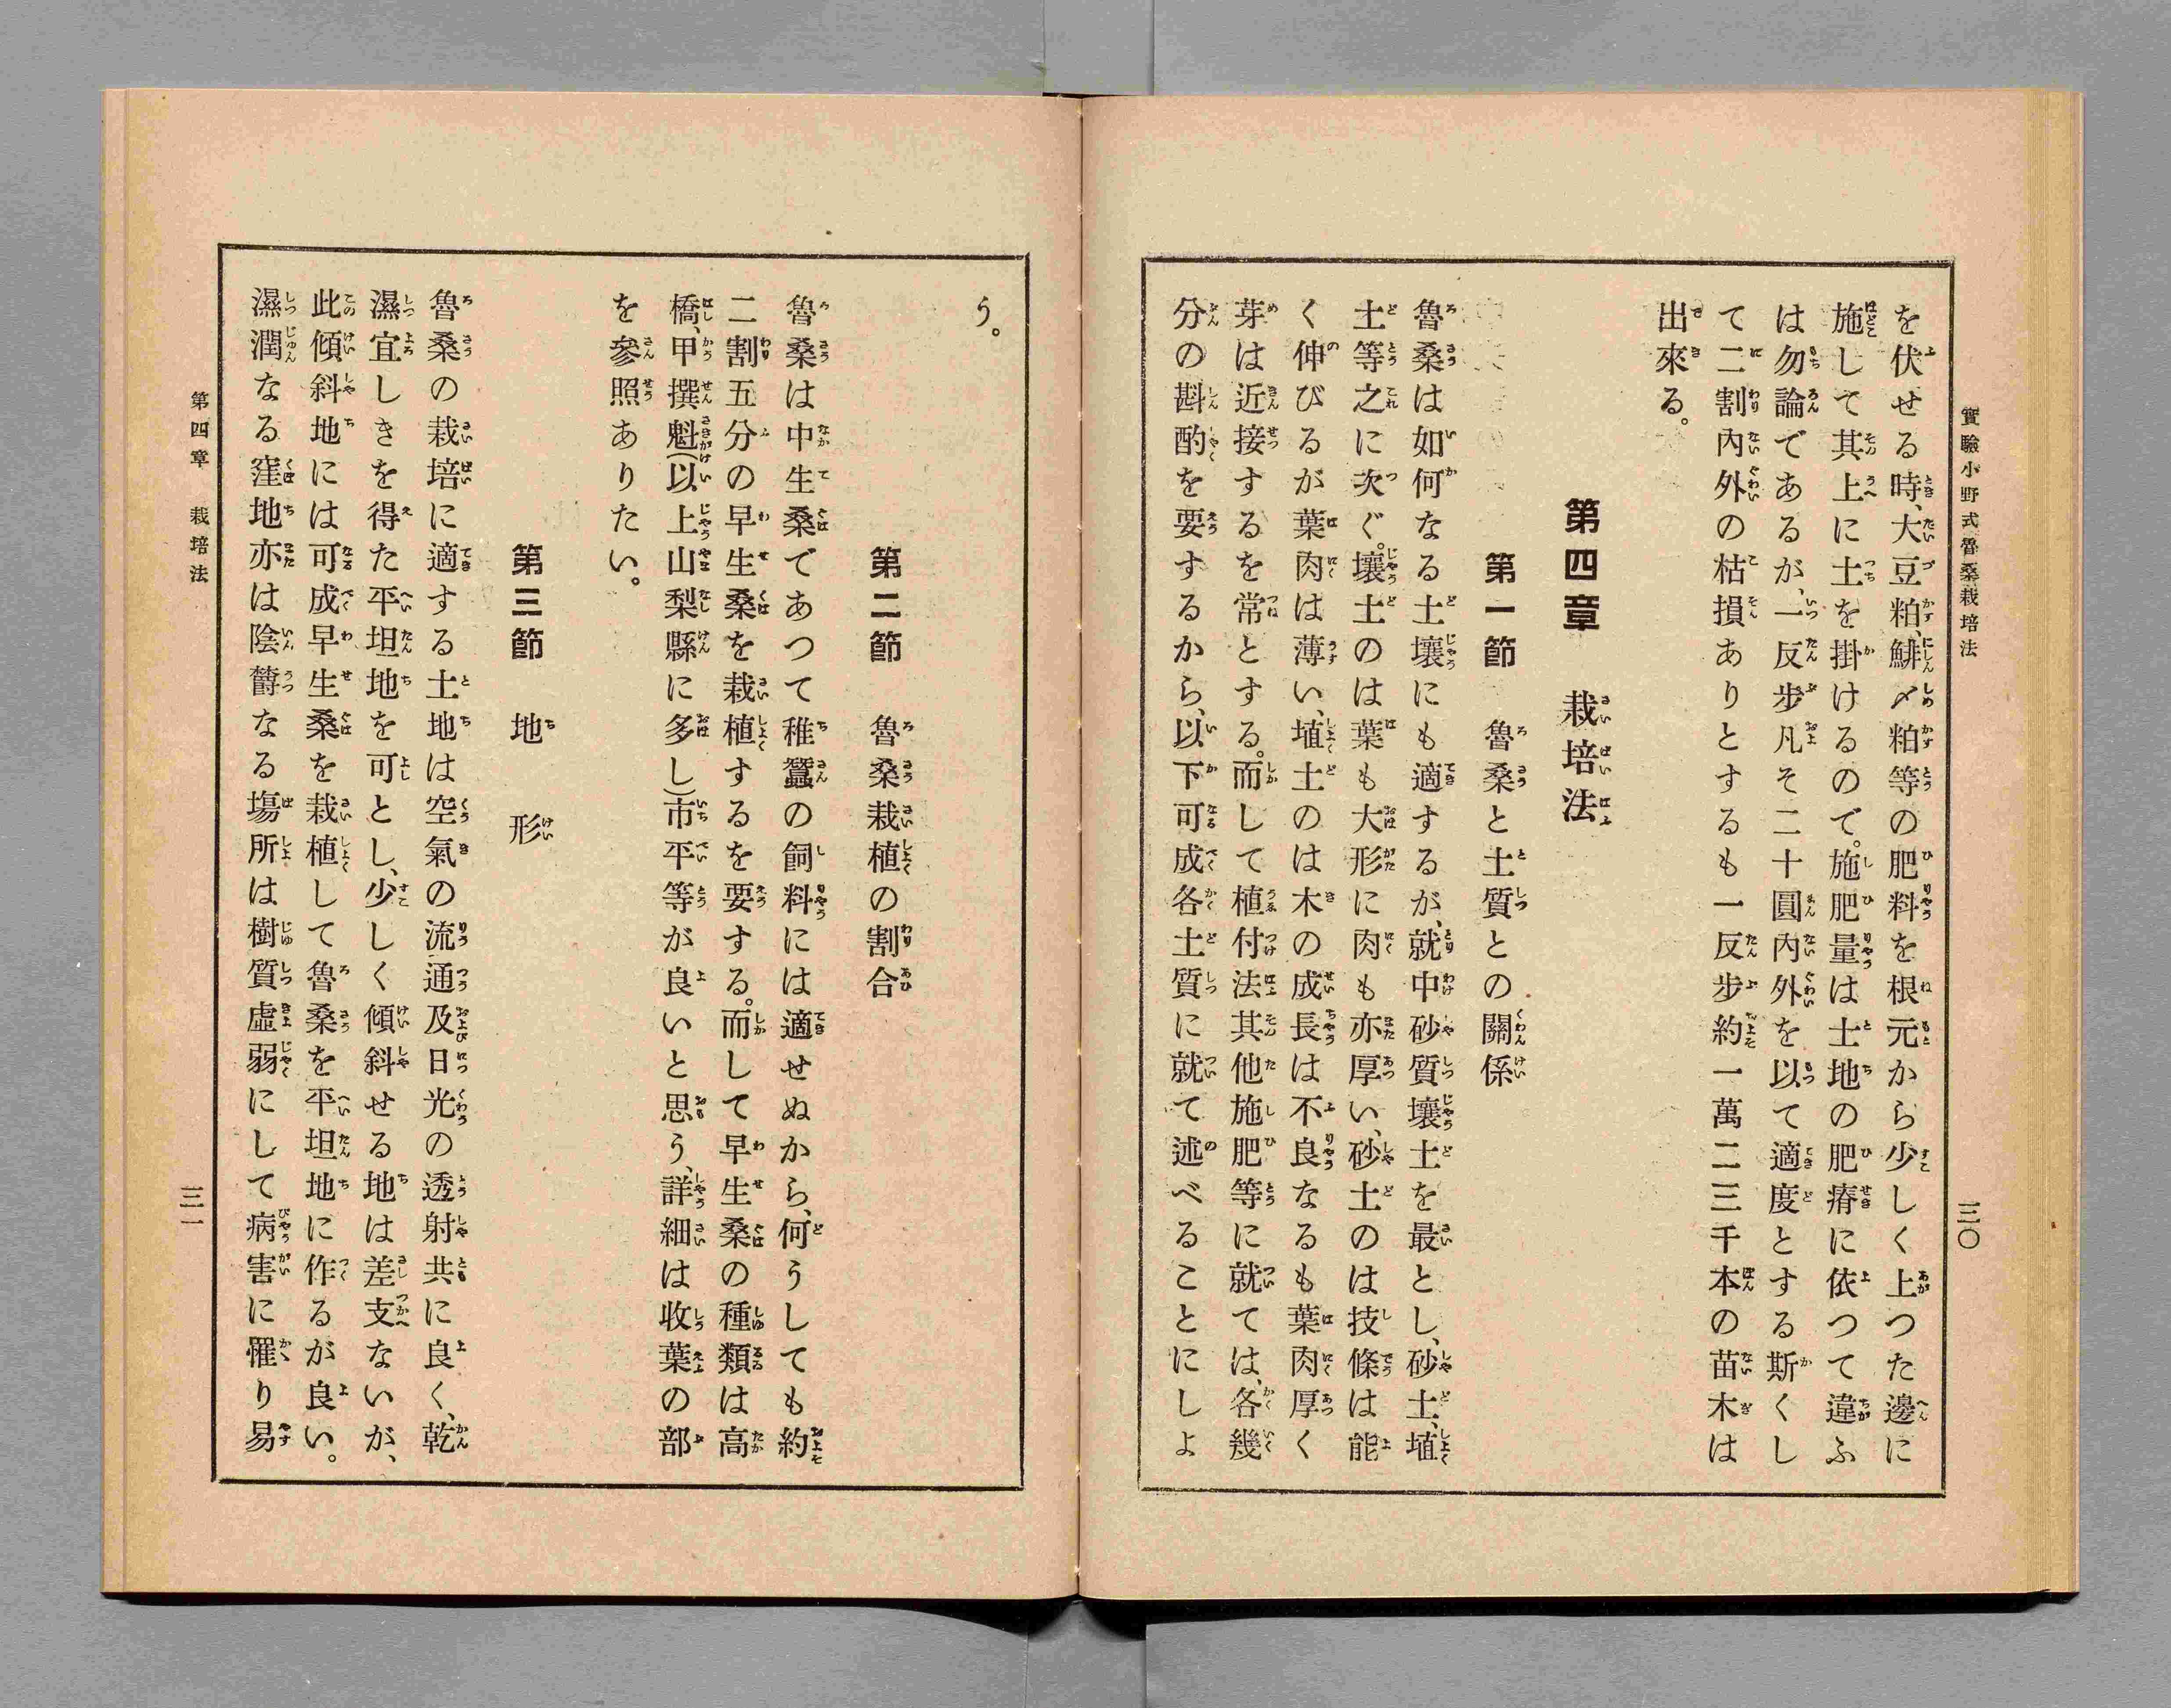 實驗小野式魯桑栽培法
三〇
を伏せる時、大豆粕、鯡〆粕等の肥料を根元から少しく上つた邊に
施して其上に土を掛けるので。施肥量は土地の肥瘠に依つて違ふ
は勿論であるが、一反步凡そ二十圓內外を以て適度とする斯くし
て二割內外の枯損ありとするも一反步約一萬二三千本の苗木は
出來る。
第四章 栽培法
第一節 魯桑と土質との關係
魯桑は如何なる土壤にも適するが、就中砂質壤土を最とし、砂土、埴
土等之に次ぐ。壤土のは葉も大形に肉も亦厚い、砂土のは技條は能
く伸びるが葉肉は薄い、埴土のは木の成長は不良なるも葉肉厚く
芽は近接するを常とする。而して植付法其他施肥等に就ては、各幾
分の斟酌を要するから、以下可成各土質に就て述べることにしよ
う。
第二節 魯桑栽植の割合
魯桑は中生桑であつて稚蠶の飼料には適せぬから、何うしても約
二割五分の早生桑を栽植するを要する。而して早生桑の種類は高
橋、甲撰魁(以上山梨縣に多し)市平等が良いと思う、詳細は收葉の部
を參照ありたい。
第三節 地形
魯桑の栽培に適する土地は空氣の流通及日光の透射共に良く、乾
濕宜しきを得た平坦地を可とし、少しく傾斜せる地は差支ないが、
此傾斜地には可成早生桑を栽植して魯桑を平坦地に作るが良い。
濕潤なる窪地亦は陰欝なる塲所は樹質虛弱にして病害に罹り易
第四章 栽培法
三一